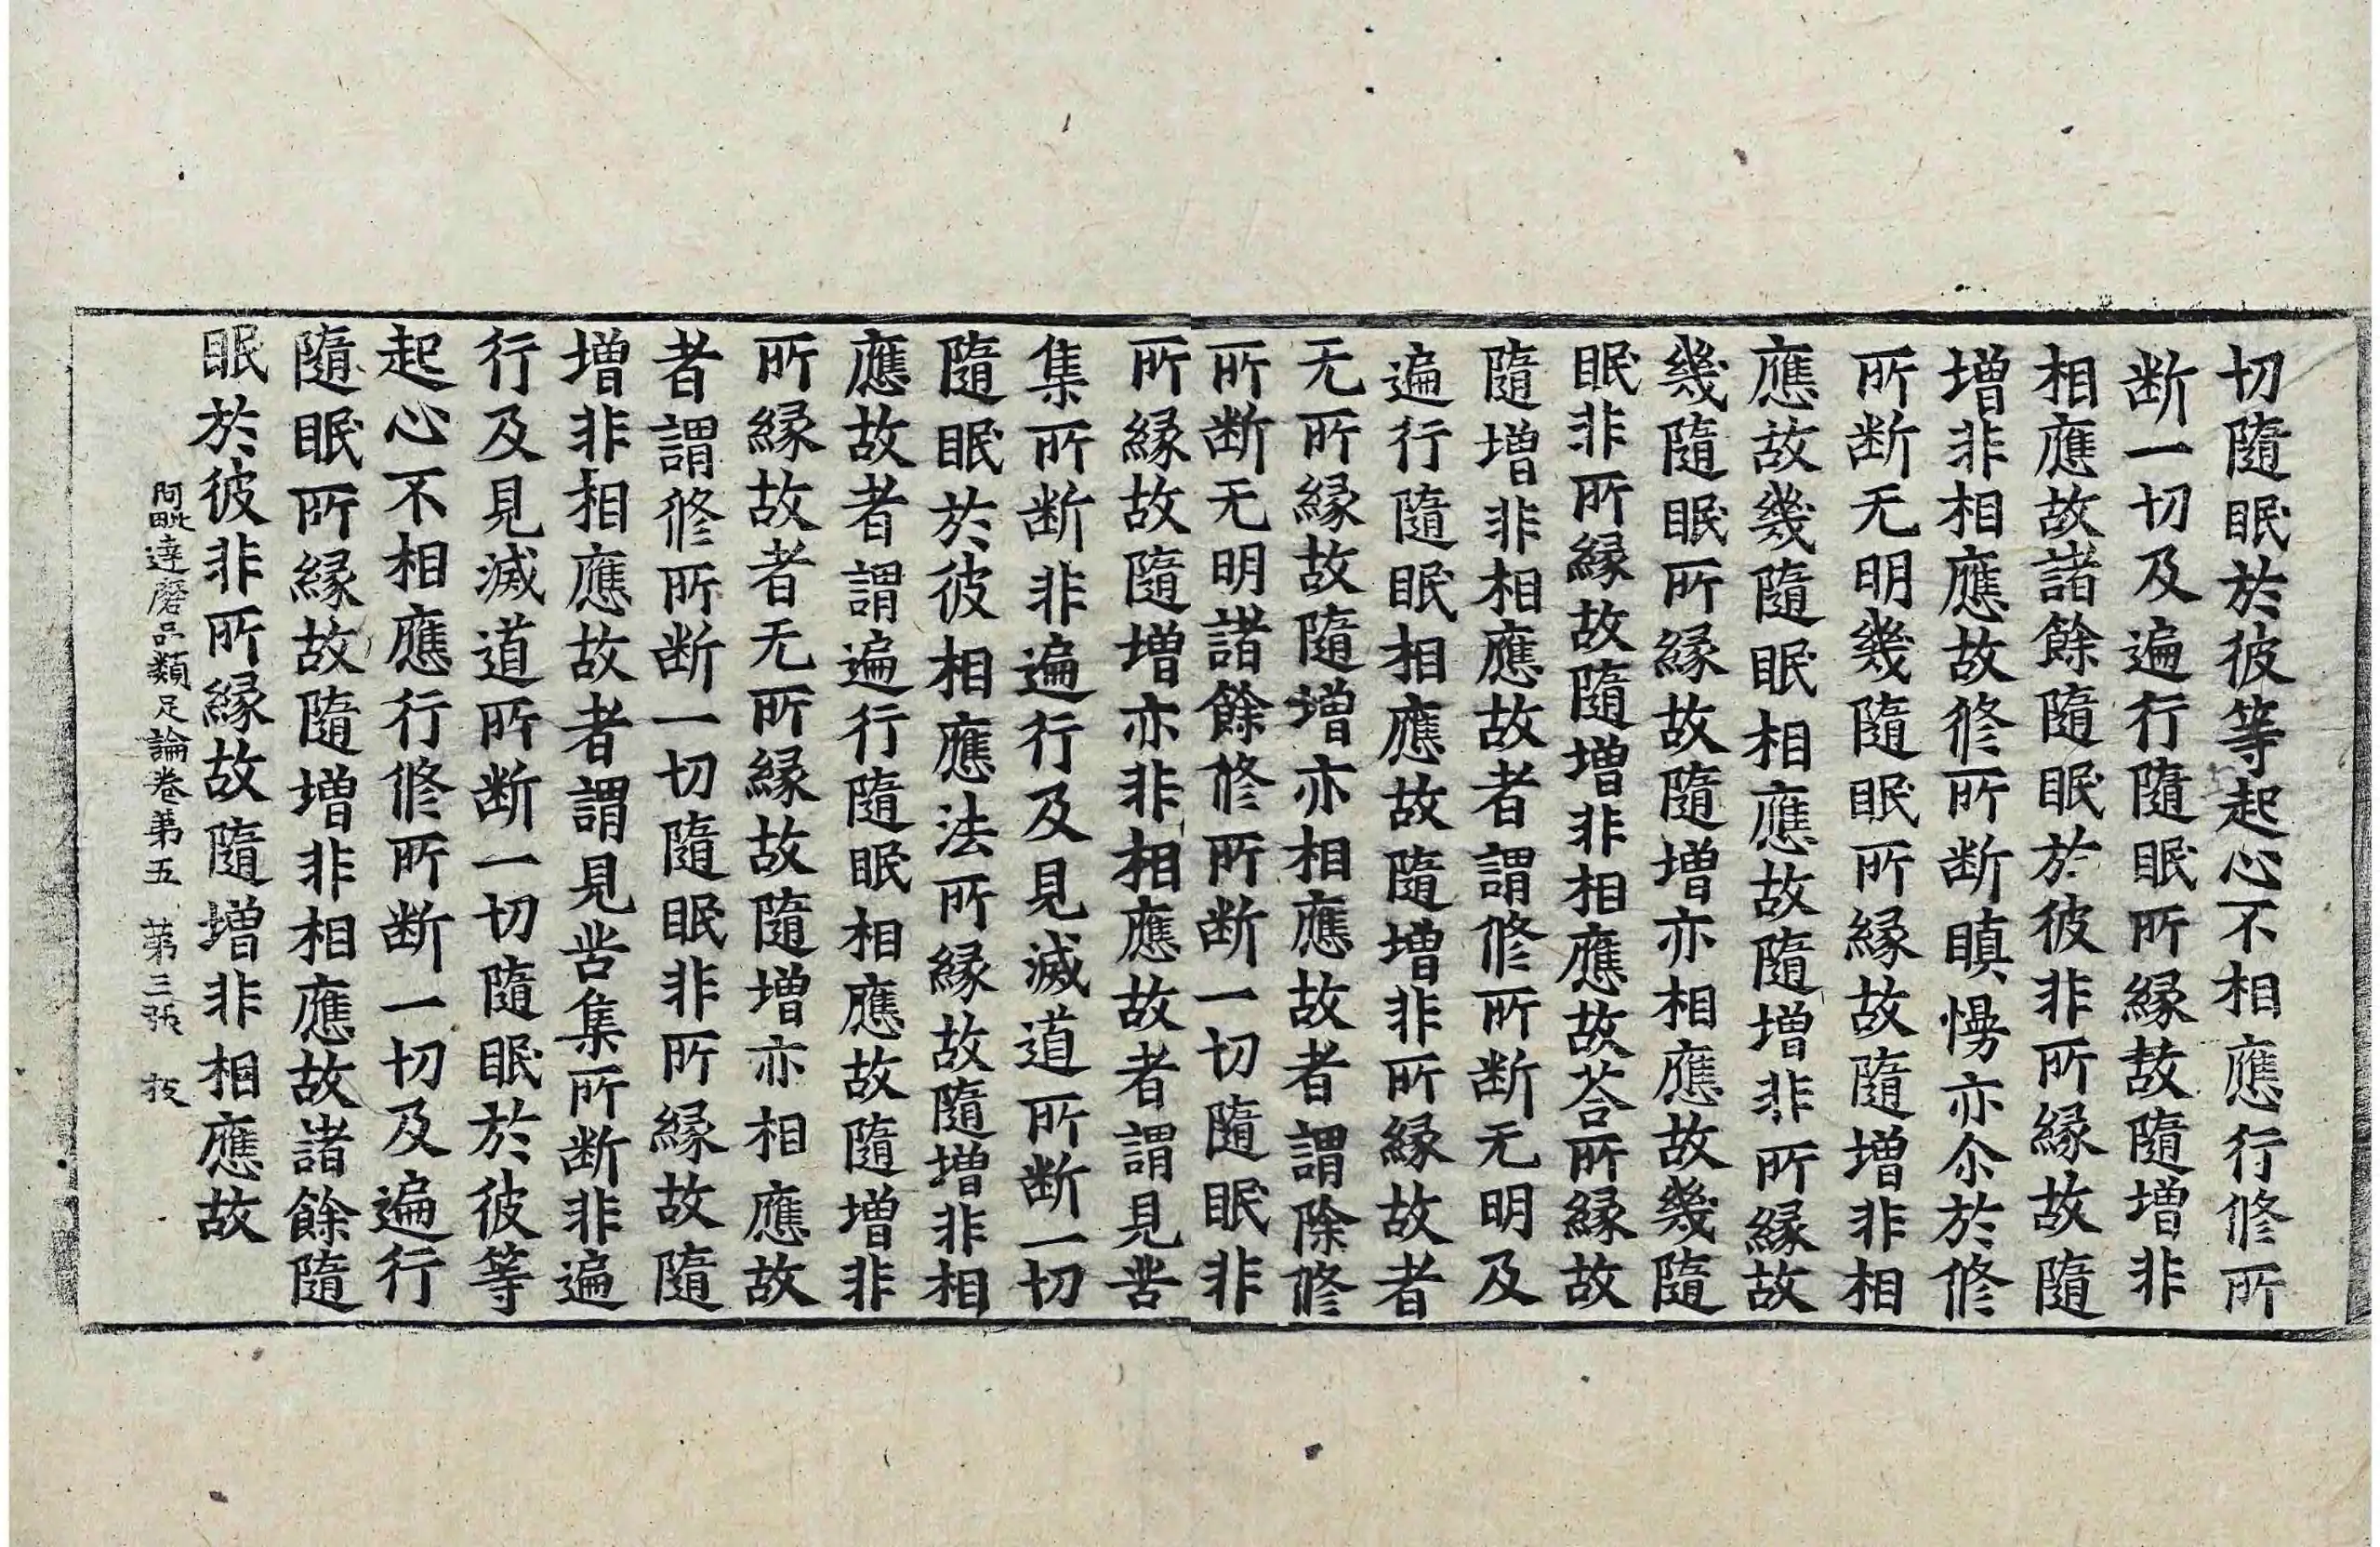 切隨眠於彼等起心不相應行修所
断一切及遍行隨眠所緣故隨增非
相應故諸餘隨眠於彼非所緣故隨
增非相應故修所断瞋慢亦尒於修
所断无明幾隨眠所緣故隨增非相
應故幾隨眠相應故隨增非所緣故
幾隨眠所緣故隨增亦相應故幾隨
眠非所緣故隨增非相應故荅所緣故
隨增非相應故者謂修所断无明及
遍行隨眠相應故隨增非所緣故者
无所緣故隨增亦相應故者謂除修
所断无明諸餘修所断一切隨眠非
所緣故隨增亦非相應故者謂見苦
集所断非遍行及見滅道所断一切
隨眠於彼相應法所緣故隨增非相
應故者謂遍行隨眠相應故隨增非
所緣故者无所緣故隨增亦相應故
者謂修所断一切隨眠非所緣故隨
增非相應故者謂見苦集所断非遍
行及見滅道所断一切隨眠於彼等
起心不相應行修所断一切及遍行
隨眠所緣故隨增非相應故諸餘隨
眠於彼非所緣故隨增非相應故
阿毗達磨品類足論卷苐五 苐三張 技